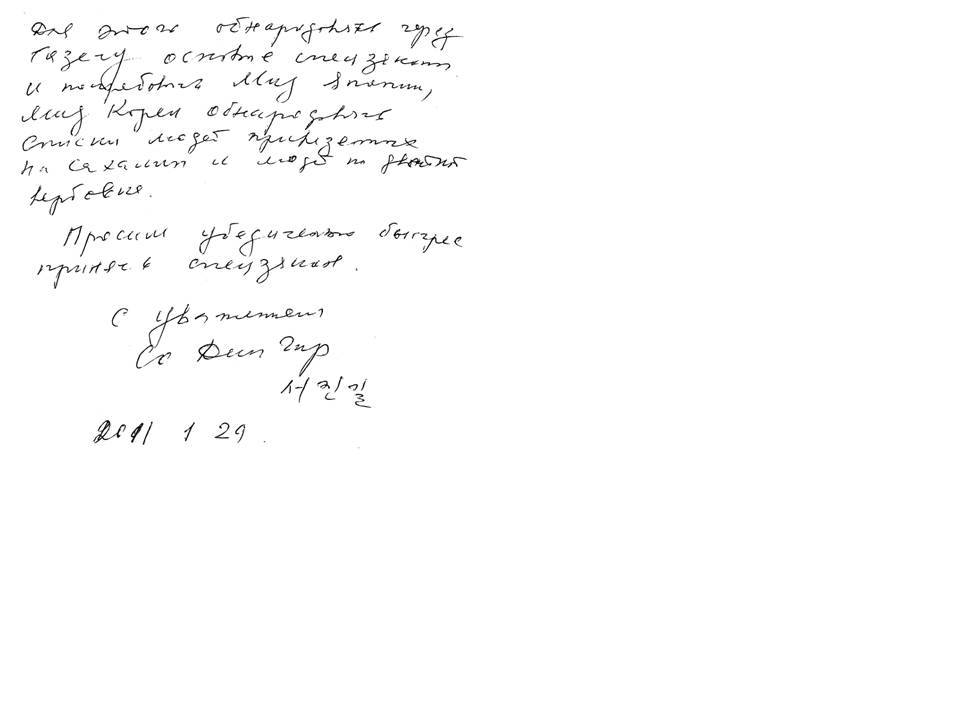 Для этого обнародовать через
газету основные спецзакон
и потребовать Мид Японии,
Мид Кореи обнародовать
списки людей привезенных
на Сахалин и людей по двойной
вербовке.
Просим убедительно быстрее
принять спецзакон.
С уважением
Со Дин Гир
서진길
2011 1 29.